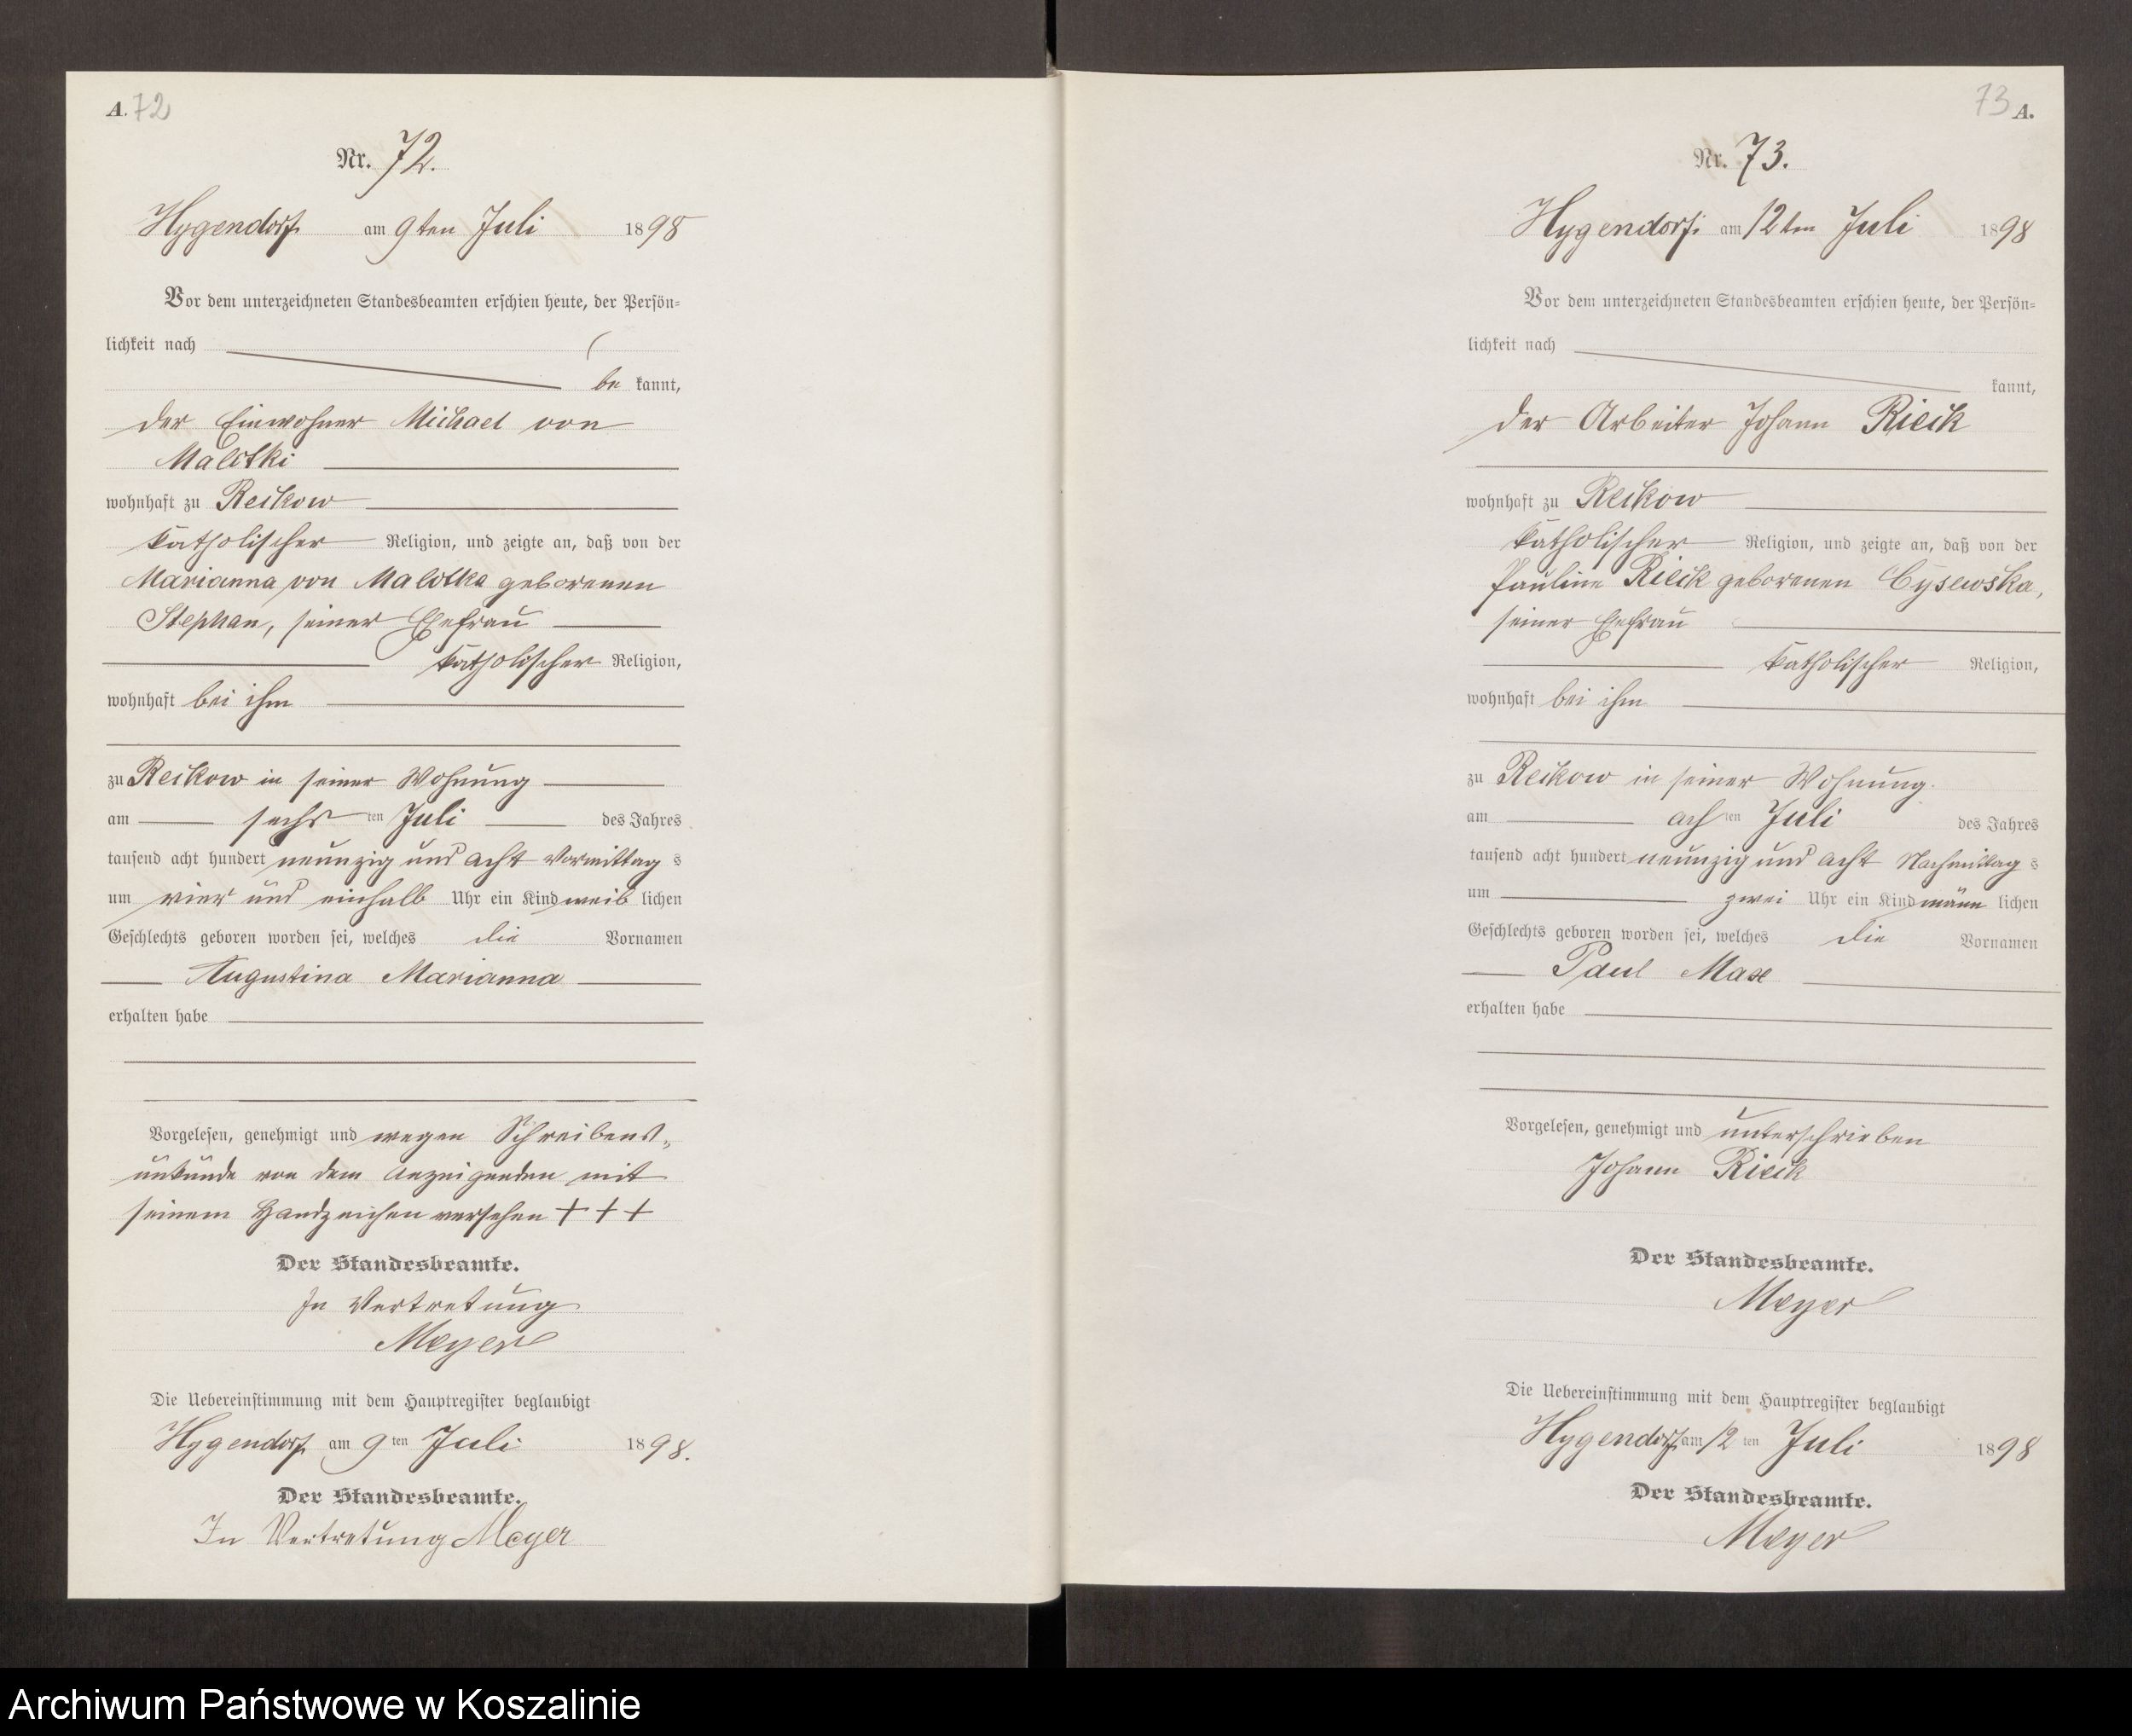 A. 72
Nr. 72.
Hygendorf am 9ten Juli 1898
Vor dem unterzeichneten Standesbeamten erschien heute, der Persön-
lichkeit nach
be kannt,
der Einwohner Michael von
Malotki
wohnhaft zu Reckow
katholischer Religion, und zeigte an, daß von der
Marianna von Malotka geborenen
Stephan, seiner Ehefrau
katholischer Religion,
wohnhaft bei ihm
zu Reckow in seiner Wohnung
am sechsten Juli des Jahres
tausend acht hundert neunzig und acht Vormittags
um vier und einhalb Uhr ein Kind weiblichen
Geschlechts geboren worden sei, welches die Vornamen
Augustina Marianna
erhalten habe
Vorgelesen, genehmigt und wegen Schreibens-
unkunde von dem Anzeigenden mit
seinem Handzeichen versehen + + +
Der Standesbeamte.
In Vertretung
Meyer
Die Uebereinstimmung mit dem Hauptregister beglaubigt
Hygendorf am 9ten Juli 1898.
Der Standesbeamte.
In Vertretung Meyer
73 A.
Nr. 73.
Hygendorf am 12ten Juli 1898
Vor dem unterzeichneten Standesbeamten erschien heute, der Persön-
lichkeit nach
kannt,
der Arbeiter Johann Rieck
wohnhaft zu Reckow
katholischer Religion, und zeigte an, daß von der
Pauline Rieck geborenen Cysewska,
seiner Ehefrau
katholischer Religion,
wohnhaft bei ihm
zu Reckow in seiner Wohnung
am achten Juli des Jahres
tausend acht hundert neunzig und acht Nachmittags
um zwei Uhr ein Kind männlichen
Geschlechts geboren worden sei, welches die Vornamen
Paul Max
erhalten habe
Vorgelesen, genehmigt und unterschrieben
Johann Rieck
Der Standesbeamte.
Meyer
Die Uebereinstimmung mit dem Hauptregister beglaubigt
Hygendorf am 12ten Juli 1898
Der Standesbeamte.
Meyer
Archiwum Państwowe w Koszalinie